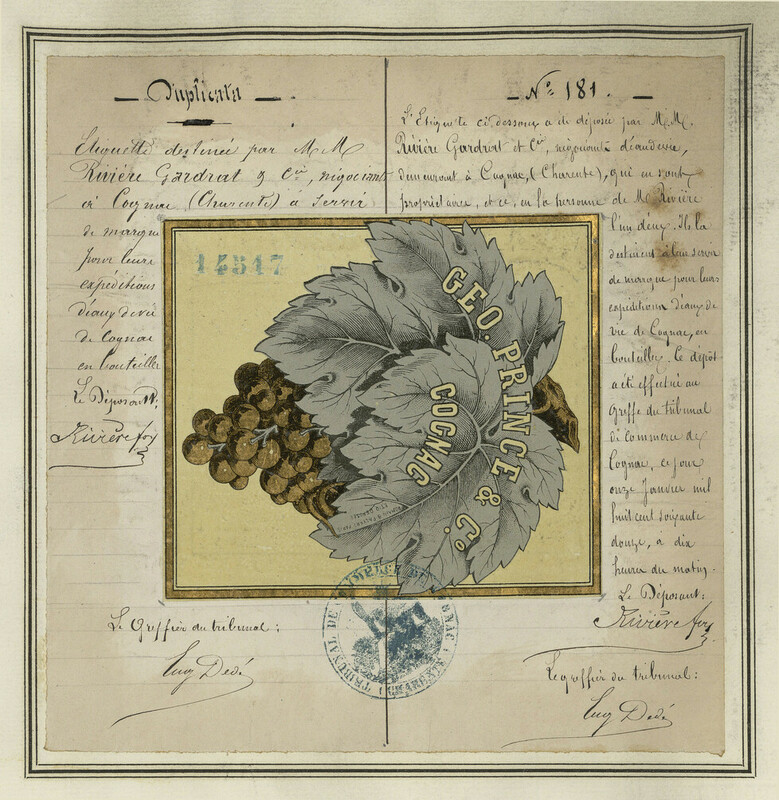 Duplicata
Etiquette destinée par M M
Rivière Gardrat & Cie, négociants
à Cognac (Charente) à servir
de marque
pour leurs
expéditions
d'eaux de vie
de Cognac
en bouteilles
Le Déposant:
Rivière
Le Greffier du tribunal:
Eug Dedé
No 181.
L'Etiquette ci-dessous a été déposée par M.M.
Rivière Gardrat et Cie, négociants d'eau de vie,
demeurant à Cognac, (Charente), qui en sont
propriétaires, et ce, en la personne de M. Rivière
l'un d'eux. Ils la
destinent à leur servir
de marque pour leurs
expéditions d'eaux de
vie de Cognac, en
bouteilles. Ce dépôt
a été effectué au
greffe du tribunal
de Commerce de
Cognac, ce jour
onze Janvier mil
huit cent soixante
douze, à dix
heures du matin.
Le Déposant:
Rivière
Le greffier du tribunal:
Eug Dedé
14517
GEO. PRINCE & Co.
COGNAC
TRIBUNAL DE COMMERCE DE COGNAC